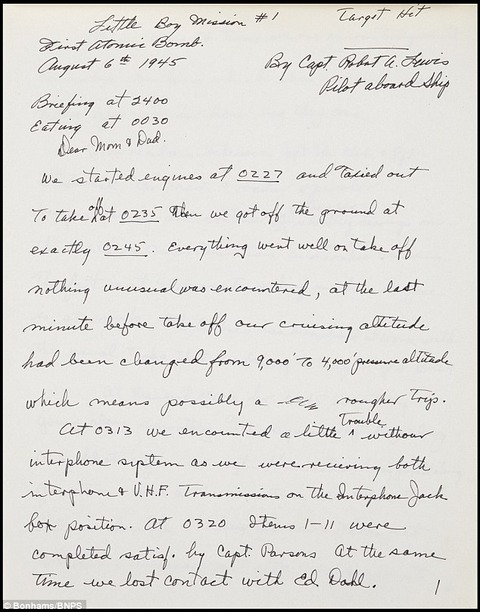 Little Boy Mission #1 Target Hit
First Atomic Bomb.
August 6th 1945 By Capt Robert A. Lewis
Pilot aboard Ship
Briefing at 2400
Eating at 0030
Dear Mom & Dad.
We started engines at 0227 and Taxied out
To take off at 0235 Then we got off the ground at
exactly 0245. Everything went well on take off
nothing unusual was encountered, at the last
minute before take off our cruising altitude
had been changed from 9,000' To 4,000' pressure altitude
which means possibly a rougher Trip.
At 0313 we encountered a little Trouble with our
interphone system as we were receiving both
interphone & V.H.F. Transmissions on the Interphone Jack
box position. At 0320 Items 1-11 were
completed satisf. by Capt. Parsons At the same
Time we lost contact with Ed Dahl.
1
© Bonhams/BNPS